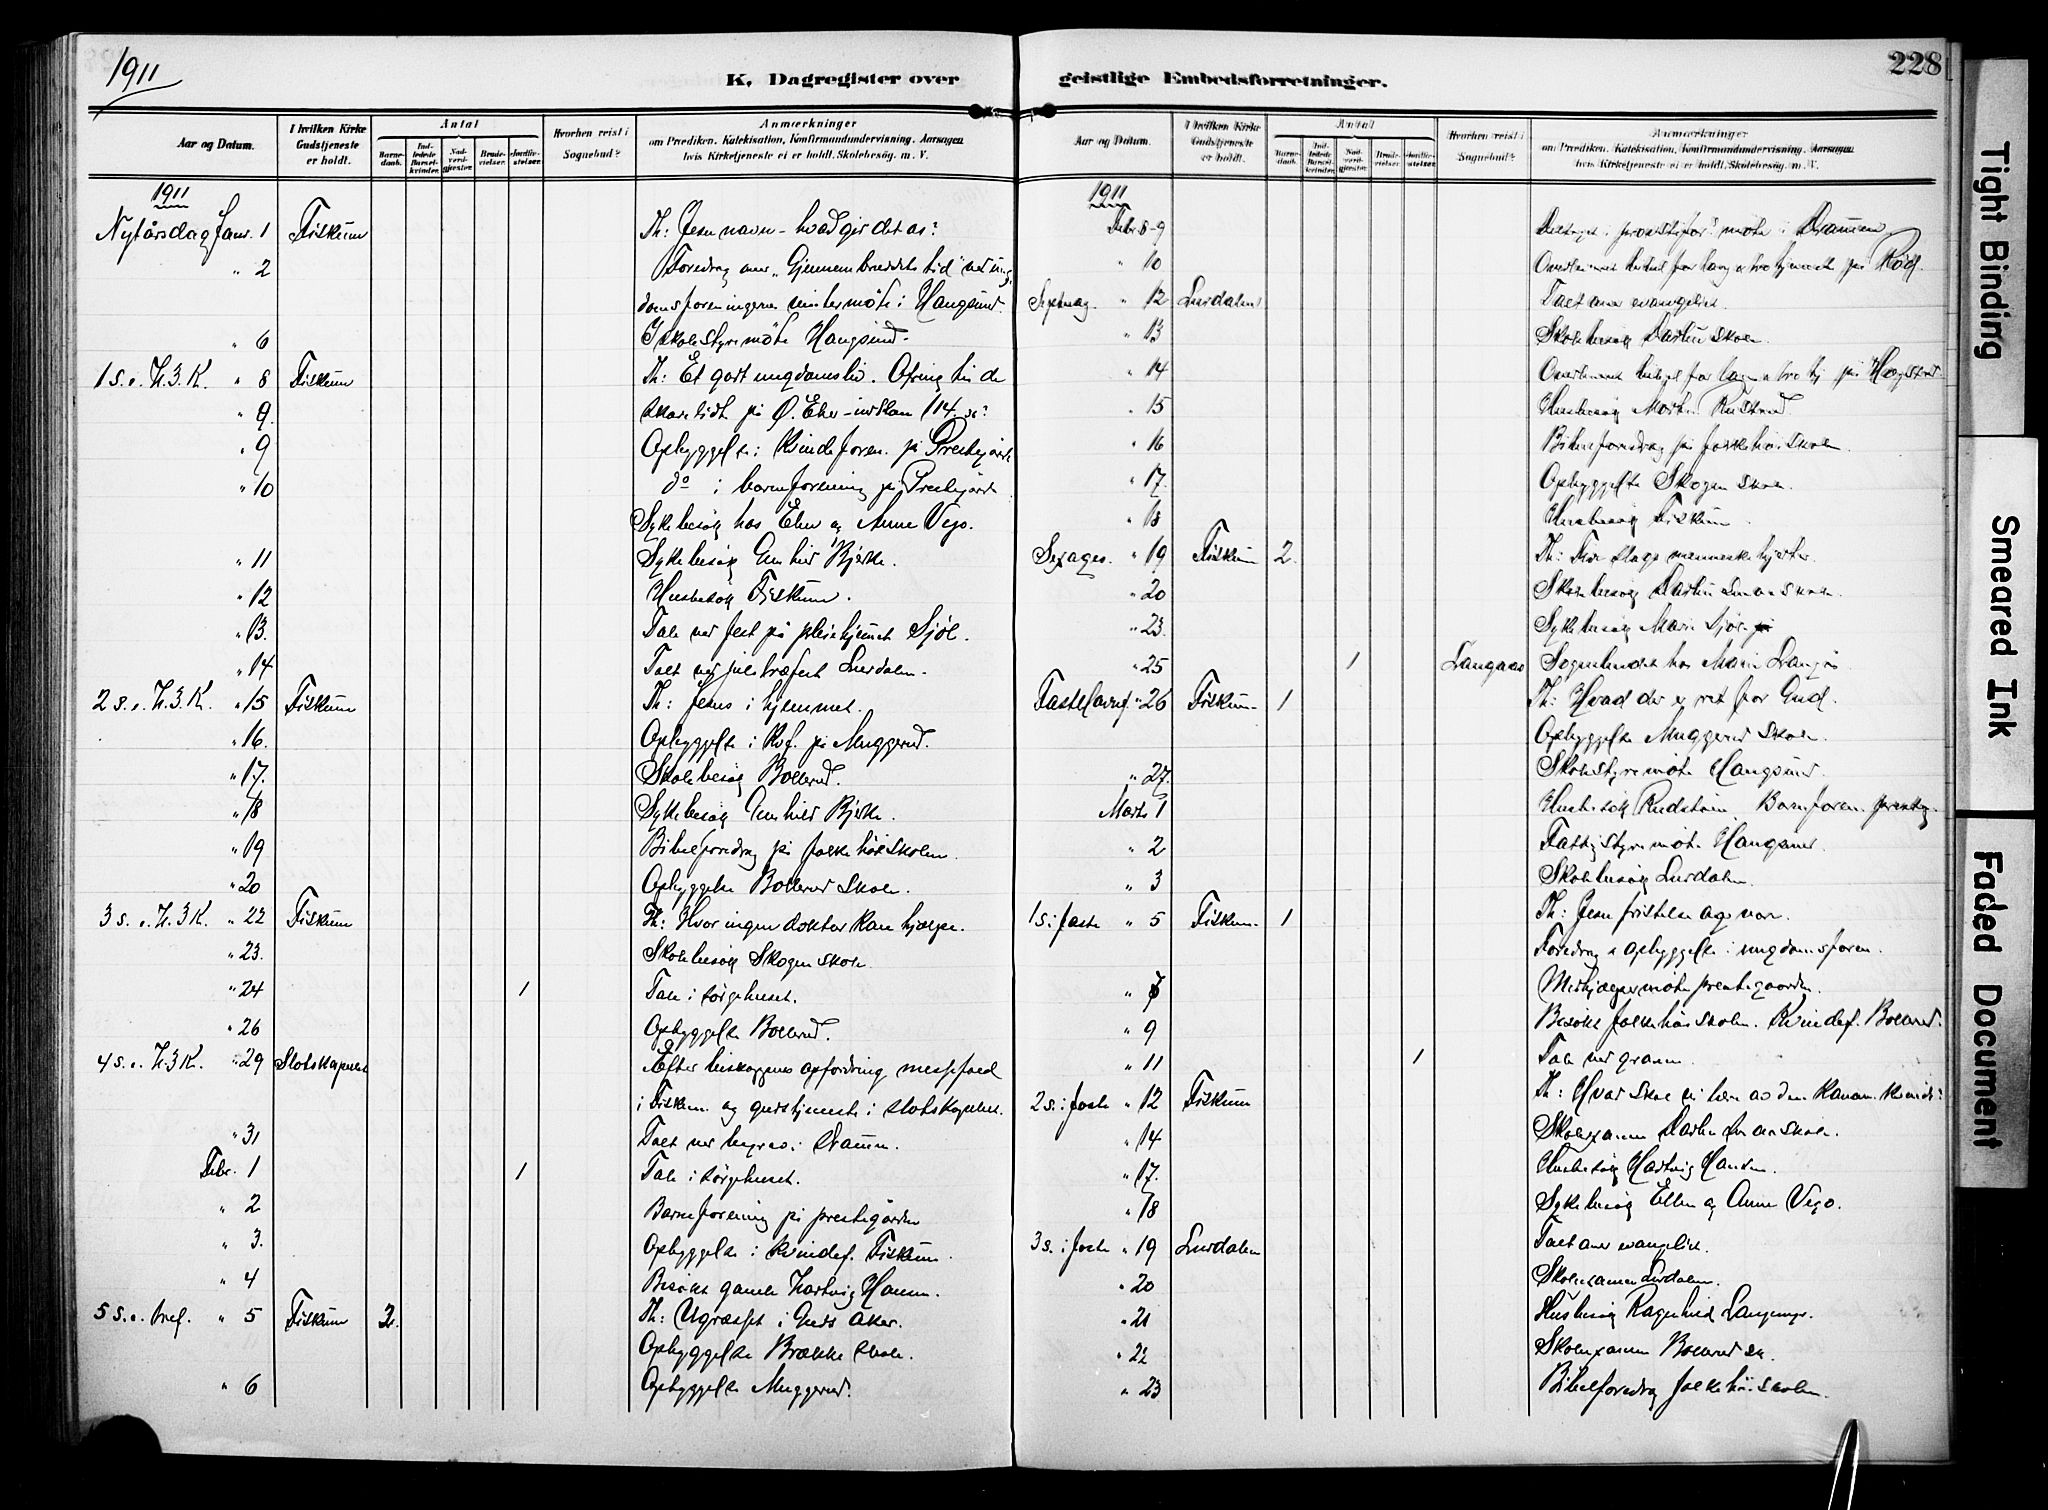 1911
K. Dagregister over
geistlige Embedsforretninger.
228
Aar og Datum.
I hvilken Kirke Gudstjeneste er holdt.
Antal
Barnedaab.
Indledede Barselkvinder.
Nadverdgjester.
Brudevielser.
Jordfæstelser.
Hvorhen reist i Sognebud?
Anmærkninger
om Prædiken, Katekisation, Konfirmandundervisning, Aarsagen
hvis Kirketjeneste ei er holdt, Skolebesøg m. V.
1911
Nytårsdag Janr. 1 Fiskum Th: Jesu navn - hvad gir det os?
" 2 Foredrag over "Gjennembruddets tid" ved ung
domsforeningernes vintermöte i Hangsund.
" 6 Skolestyremöte Hangsund.
1 s. e. H. 3. K. " 8 Fiskum Th: Et godt ungdomsliv.
" 9
" 9 Opbyggelse i Kvindeforen. på Prestegården
" 10 do i barneforening på Prestegården
Sykebesök hos Ellen og Anne Vego.
" 11 Sykebesök Gunhild Bjerke.
" 12 Husbesök Fiskum.
" 13. Tale ved fest på pleiehjemmet Sjöl.
" 14 Talt ved juletræfest Lurdalen.
2 s. e. H. 3. K. " 15 Fiskum Th: Jesus i hjemmet.
" 16. Opbyggelse i Kvf. på Muggerud.
" 17. Skolebesög Bollerud.
" 18 Sykebesök Gunhild Bjerke.
" 19 Bibelforedrag på folkehöiskolen.
" 20 Opbyggelse Bollerud Skole.
3 s. e. H. 3 K. " 22 Fiskum Th: Hvor ingen doktor kan hjælpe.
" 23. Skolebesök Skogen skole.
" 24 1 Tale i sörgehuset.
" 26 Opbyggelse Bollerud.
4 s. e. H. 3 K. " 29 Slotskapellet Efter biskoppens opfordring messefald
i Fiskum og gudstjeneste i slotskapellet.
" 31 Talt ved begrav. i Drammen.
Febr. 1 1 Tale i sörgehuset.
" 2 Barneforening på prestegården
" 3. Opbyggelse i kvindef. Fiskum.
" 4 Besökt gamle Hartvig Hansen.
5 s. e. " 5 Fiskum 2. Th: Ugræsset i Guds aker.
Opbyggelse Brække skole.
" 6 Opbyggelse Muggerud.
Aar og Datum.
I hvilken Kirke Gudstjeneste er holdt.
Antal
Barnedaab.
Indledede Barselkvinder.
Nadverdgjester.
Brudevielser.
Jordfæstelser.
Hvorhen reist i Sognebud?
Anmærkninger
om Prædiken, Katekisation, Konfirmandundervisning, Aarsagen
hvis Kirketjeneste ei er holdt, Skolebesøg m. V.
1911
Febr. 8-9 Deltaget i möte i Drammen
" 10 for lang og tro tjeneste på Röd.
Septuag. " 12 Lurdalen Talt over evangeliet.
" 13 Skolebesög Darbu skole.
" 14 for lang og tro tj. på Hogstad
" 15 Husbesög Morten Rustand.
" 16 Bibelforedrag på folkehöiskolen
" 17. Opbyggelse Skogen skole.
" 18 Husbesög Fiskum
Sexages. " 19 Fiskum 2. Th: Fire slags menneskehjerter.
" 20 Skolebesög Darbu skole.
" 23. Sykebesög Marie Sjöl
" 25 1 Langaas Sognebudet hos Marie Langås
Fastelavnss. " 26 Fiskum 1 Th: Hvad der er ret for Gud.
Opbyggelse Muggerud Skole.
" 27. Skolestyremöte Hangsund.
Marts 1 Husbesök Rudstöin. Barneforen. prestegd.
" 2 Fattigstyremöte Hangsund.
" 3 Skolebesög Lurdalen.
1 s. i faste " 5 Fiskum 1 Th: Jesu fristelse og vor.
Foredrag og opbyggelse i ungdomsforen.
" 7 Medhjælpermöte prestegaarden.
" 9 Besökt folkehöiskolen. Kvindef. Bollerud.
" 11 1 Tale ved graven.
2 s. i faste " 12 Fiskum Th: Hvad skal vi lære av den kanan. kvinde?
" 14 Skoleexamen Darbu skole.
" 17. Husbesög Hartvig Hansen.
" 18 Sykebesög Ellen og Anne Vego.
3 s. i faste " 19 Lurdalen Talt over evangeliet.
" 20 Skoleexamen Lurdalen.
" 21 Husbesög Ragnhild Langemyr.
" 22 Skoleexamen Bollerud sk.
" 23 Bibelforedrag folkehöiskolen.
Tight Binding
Smeared Ink
Faded Document